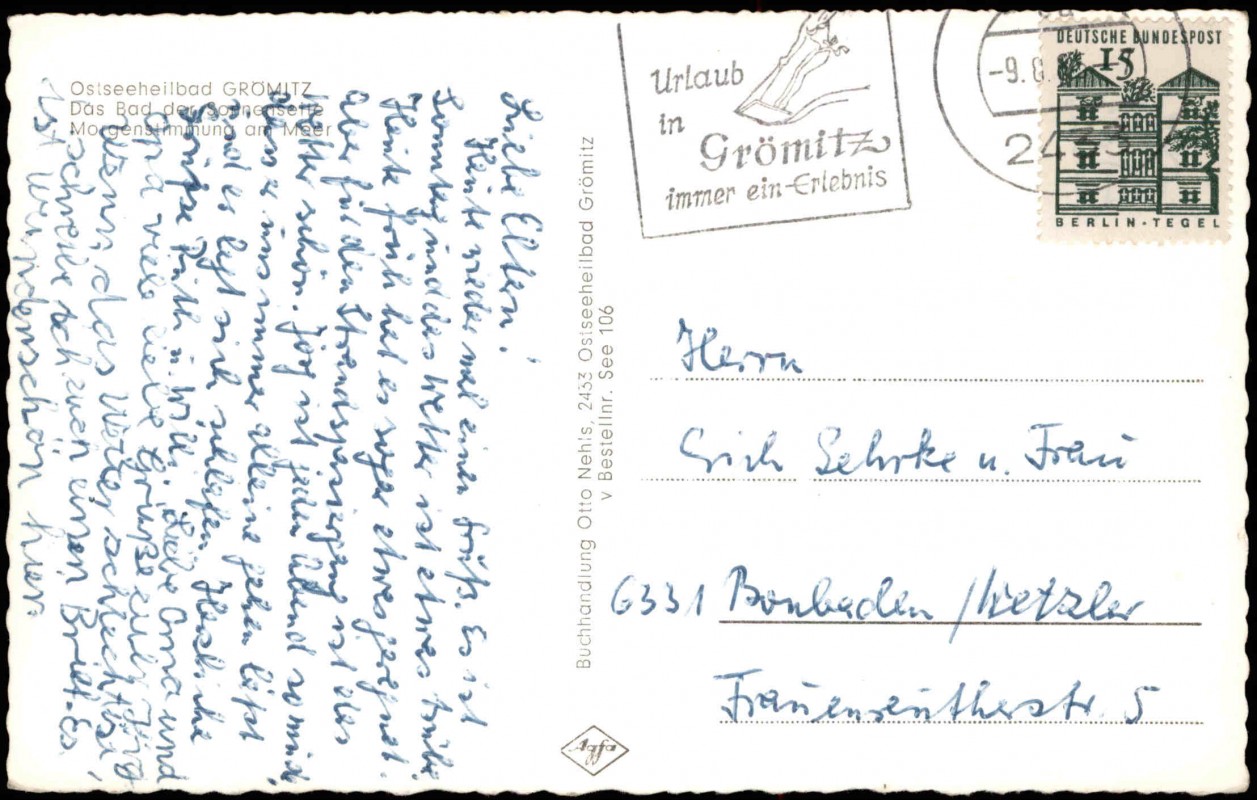 Ostseeheilbad GRÖMITZ
Das Bad der Sonnenseite
Morgenstimmung am Meer
Liebe Eltern!
Heute wieder mal einen Gruß. Es ist
Sonntag und das Wetter ist etwas trübe
Heute früh hat es sogar etwas geregnet.
Aber für den Strandspaziergang ist das
Wetter schön. Jörg ist jeden Abend so müde
dass er uns immer alleine gehen läßt
und es legt sich schlafen. Herzliche
Grüße Ruth u. Willi. Liebe Oma und
Opa viele liebe Grüße euer Jörg
Wenn das Wetter schlecht ist,
schreibe ich euch einen Brief. Es
ist wunderschön hier.
Buchhandlung Otto Nehls, 2433 Ostseeheilbad Grömitz
v Bestellnr. See 106
Agfa
Urlaub
in
Grömitz
immer ein Erlebnis
-9.8.
24
DEUTSCHE BUNDESPOST
15
BERLIN-TEGEL
Herrn
Erich Sehrke u. Frau
6331 Bonbaden/Wetzlar
Frauenreutherstr. 5